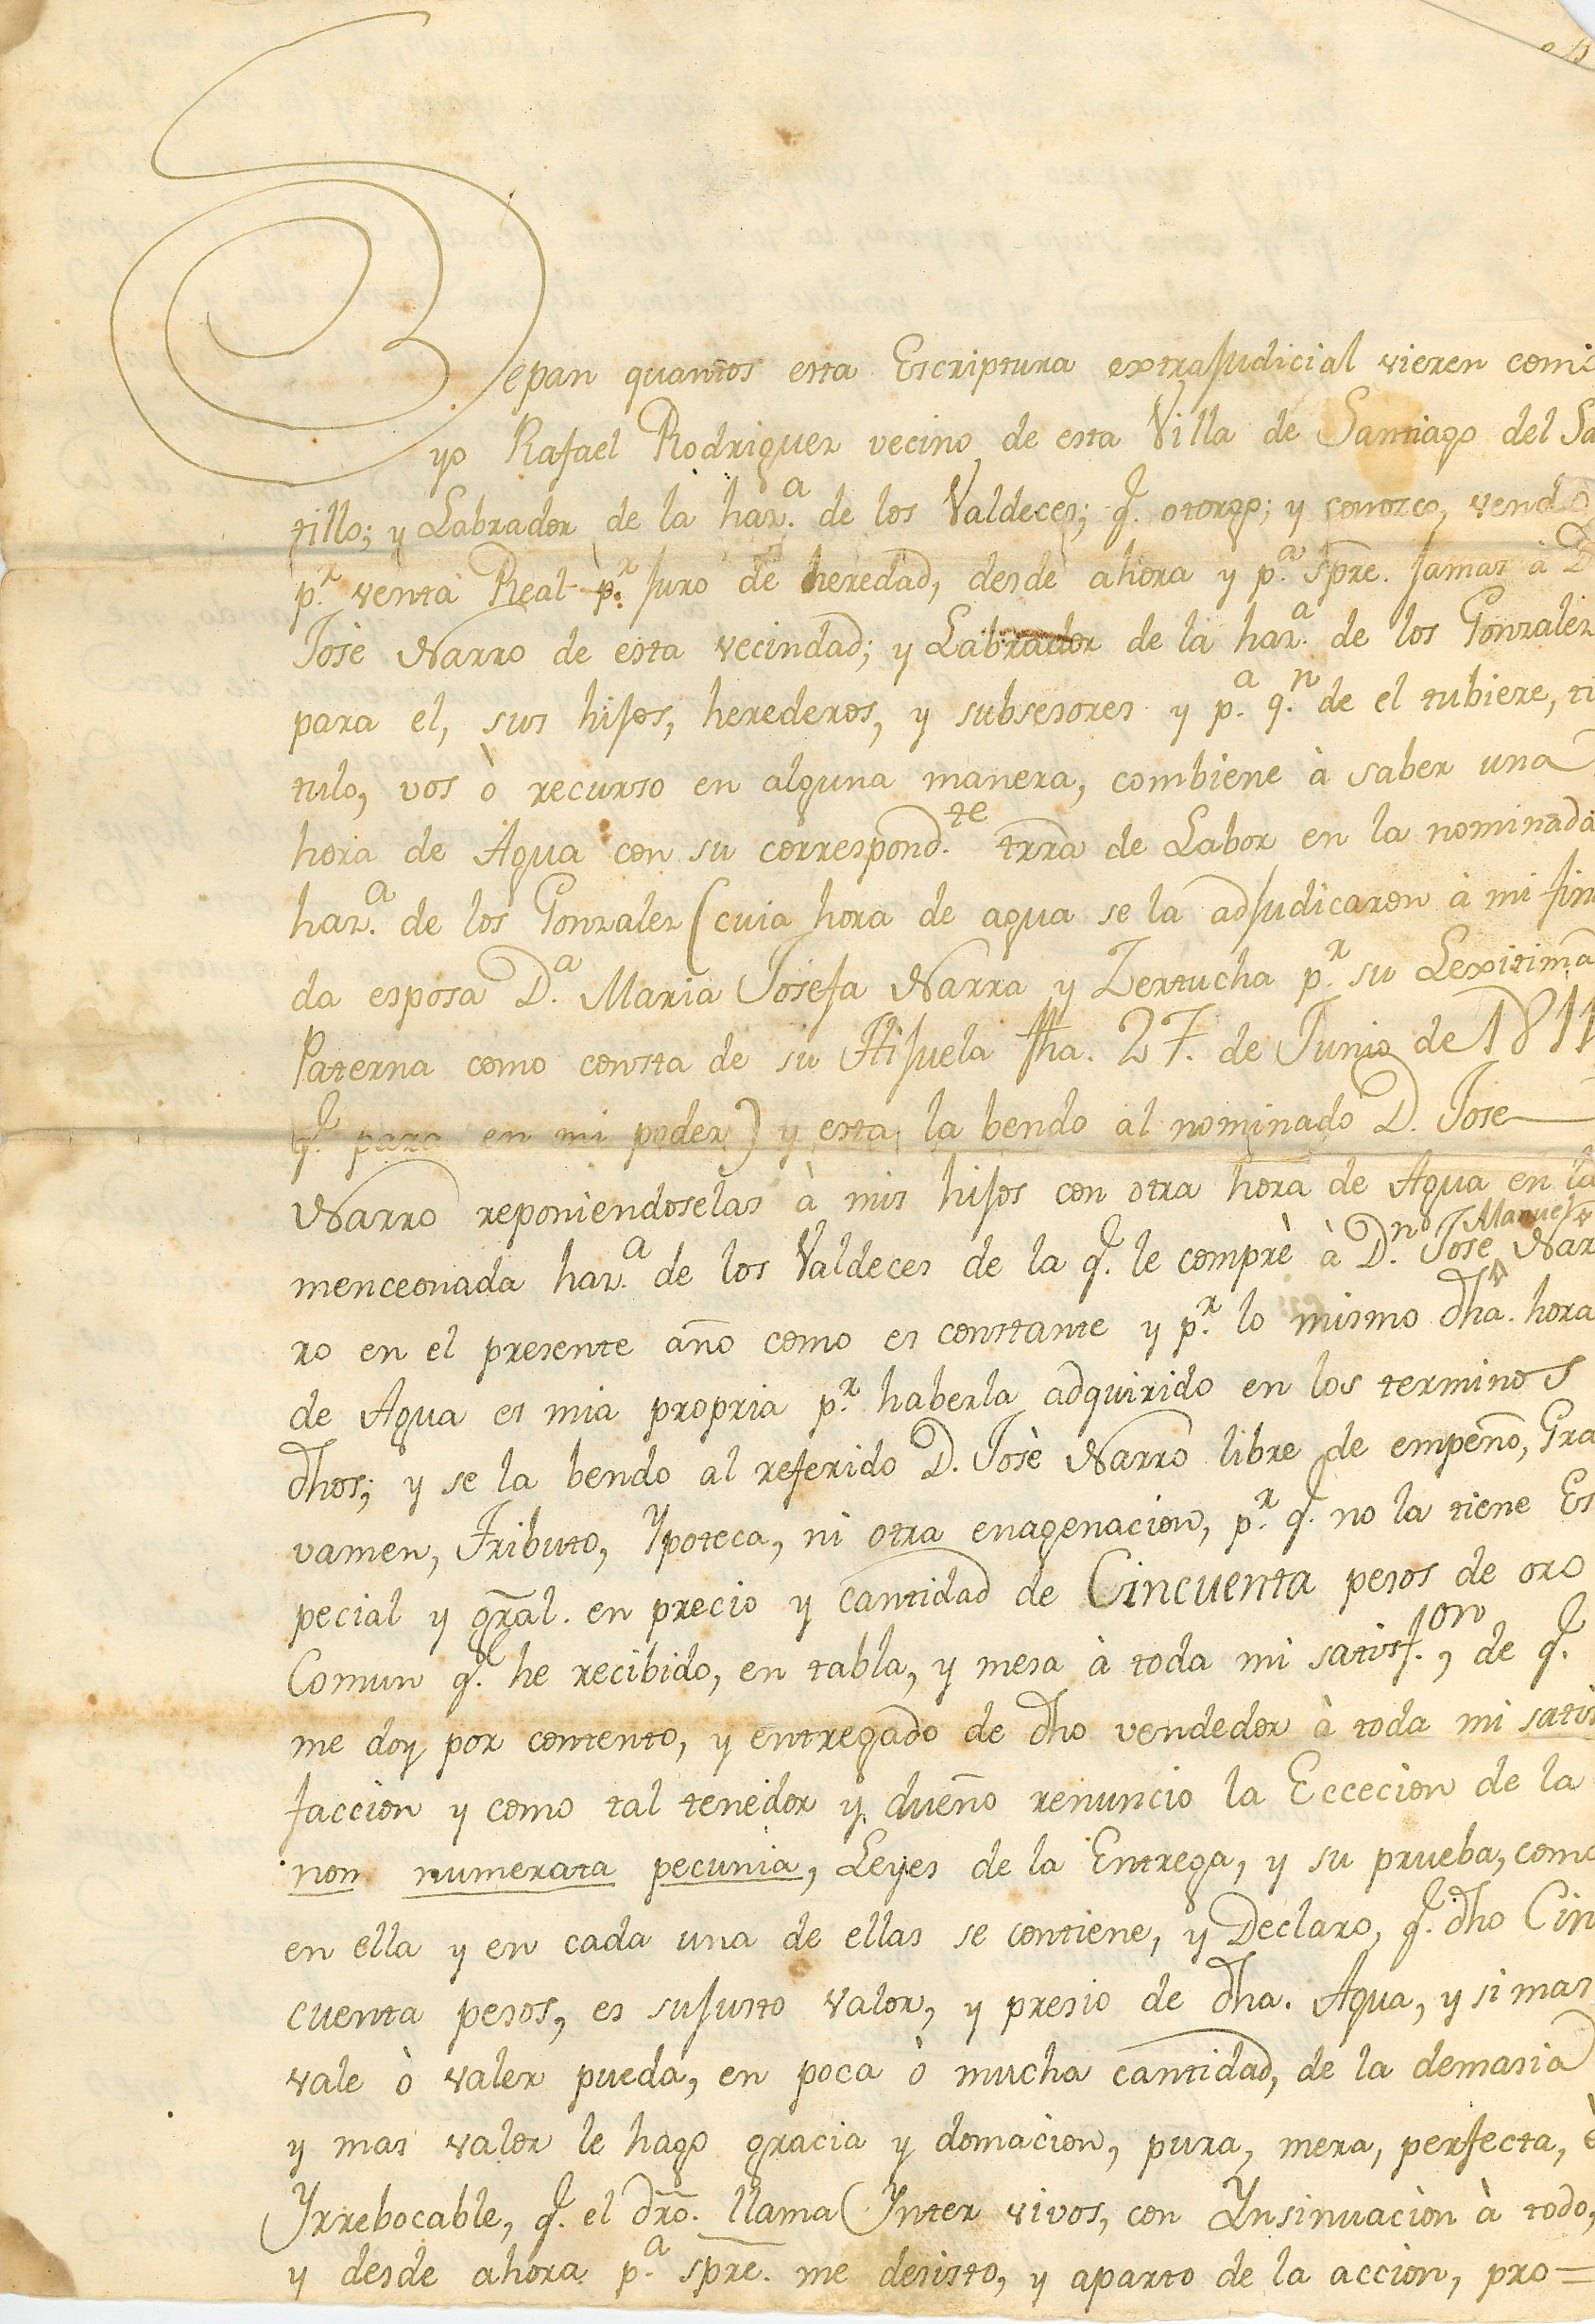 Sepan quantos esta Escriptura extrajudicial vieren como
yo Rafael Rodriguez vecino de esta Villa de Santiago del Sal
tillo; y Labrador de la haz.a de los Valdeces; q.e otorgo; y conozco, vendo
p.r venta Real p.r juro de heredad, desde ahora y p.a spre. jamas à D.
Josè Narro de esta vecindad; y Labrador de la haz.a de los Gonzalez
para el, sus hijos, herederos, y subsesores y p.a q.n de el tubiere, ti
tulo, vos ò recurso en alguna manera, combiene à saber una
hora de Agua con su correspond.te trra de Labor en la nominada
haz.a de los Gonzalez (cuia hora de agua se la adjudicaron à mi fin
da esposa D.a Maria Josefa Narra y Zertucha p.r su Lexitima
Paterna como consta de su Hijuela fha. 27. de Junio de 1811
q.e para en mi poder) y esta la bendo al nominado D. Jose
Narro reponiendoselas à mis hijos con otra hora de Agua en la
menceonada haz.a de los Valdeces de la q.e le comprè à D.n Jose Manuel Nar
ro en el presente año como es constante y p.r lo mismo dha. hora
de Agua es mia propria p.r haberla adquirido en los terminos
dhos; y se la bendo al referido D. Josè Narro libre de empeño, Gra
vamen, Tributo, Ypoteca, ni otra enagenacion, p.r q.e no la tiene Es
pecial y gral. en precio y cantidad de Cincuenta pesos de oro
Comun q.e he recibido, en tabla, y mesa à toda mi satisf.on, de q.e
me doy por contento, y entregado de dho vendedor à toda mi satis
faccion y como tal tenedor y dueño renuncio la Eccecion de la
non numerata pecunia, Leyes de la Entrega, y su prueba, como
en ella y en cada una de ellas se contiene, y Declaro, q.e dho Cin
cuenta pesos, es su justo valor, y presio de dha. Agua, y si mas
vale ò valer pueda, en poca ò mucha cantidad, de la demasia
y mas valor le hago gracia y domacion, pura, mera, perfecta, è
Yrrebocable, q.e el dro. llama Ynter vivos, con Ynsinuacion à todo,
y desde ahora p.a spre. me desisto, y aparto de la accion, pro=